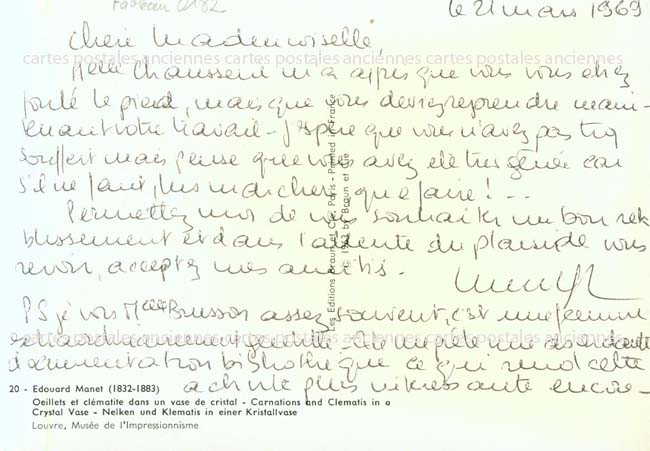 Tableau 0182
le 21 mars 1969
Chère Mademoiselle,
cartes postales anciennes cartes postales anciennes cartes postales anciennes
Melle Chaussent m'a appris que vous vous étiez
foulé le pied, mais que vous devriez reprendre main-
tenant votre travail - J'espère que vous n'avez pas trop
souffert mais pense que vous avez été très gênée car
s'il ne faut plus marcher, que faire ! ...
Permettez moi de vous souhaiter un bon réta
blissement et dans l'attente du plaisir de vous
revoir, acceptez mes amitiés.
PS je vois Melle Brusson assez souvent, c'est une femme
cartes postales anciennes cartes postales anciennes cartes postales anciennes
extraordinairement gentille
documentation bibliothèque ce qui rend cette
activité plus intéressante encore -
Les Editions Braun et Cie, Paris - Printed in France
by Braun et Cie
20 - Edouard Manet (1832-1883)
Oeillets et clématite dans un vase de cristal - Carnations and Clematis in a
Crystal Vase - Nelken und Klematis in einer Kristallvase
Louvre, Musée de l'Impressionnisme